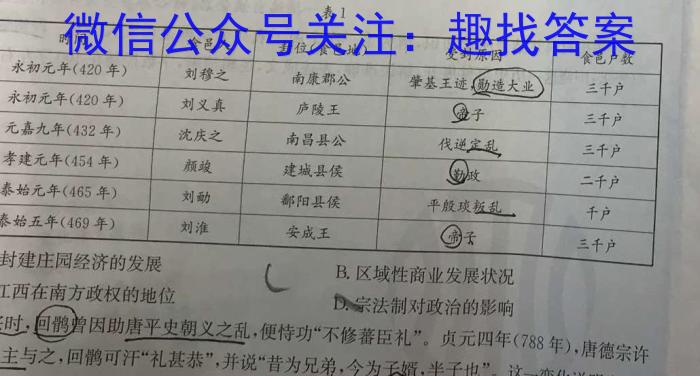 表1
微信公众号关注：趣找答案
时 食邑 封位(食邑地) 受封原因 食邑户数
永初元年(420年) 刘穆之 南康郡公 肇基王迹,勋造大业 三千户
永初元年(420年) 刘义真 庐陵王 帝子 三千户
元嘉九年(432年) 沈庆之 南昌县公 伐逆定乱 三千户
孝建元年(454年) 颜竣 建城县侯 勤政 二千户
泰始元年(465年) 刘勔 鄱阳县侯 平殷琰叛乱 千户
泰始五年(469年) 刘淮 安成王 帝子 三千户
封建庄园经济的发展 B.区域性商业发展状况
江西在南方政权的地位 D.宗法制对政治的影响
时,回鹘曾因助唐平史朝义之乱,便恃功“不修蕃臣礼”。贞元四年(788年),唐德宗许
主与之,回鹘可汗“礼甚恭”,并说“昔为兄弟,今为子婿,半子也”。这一变化说明